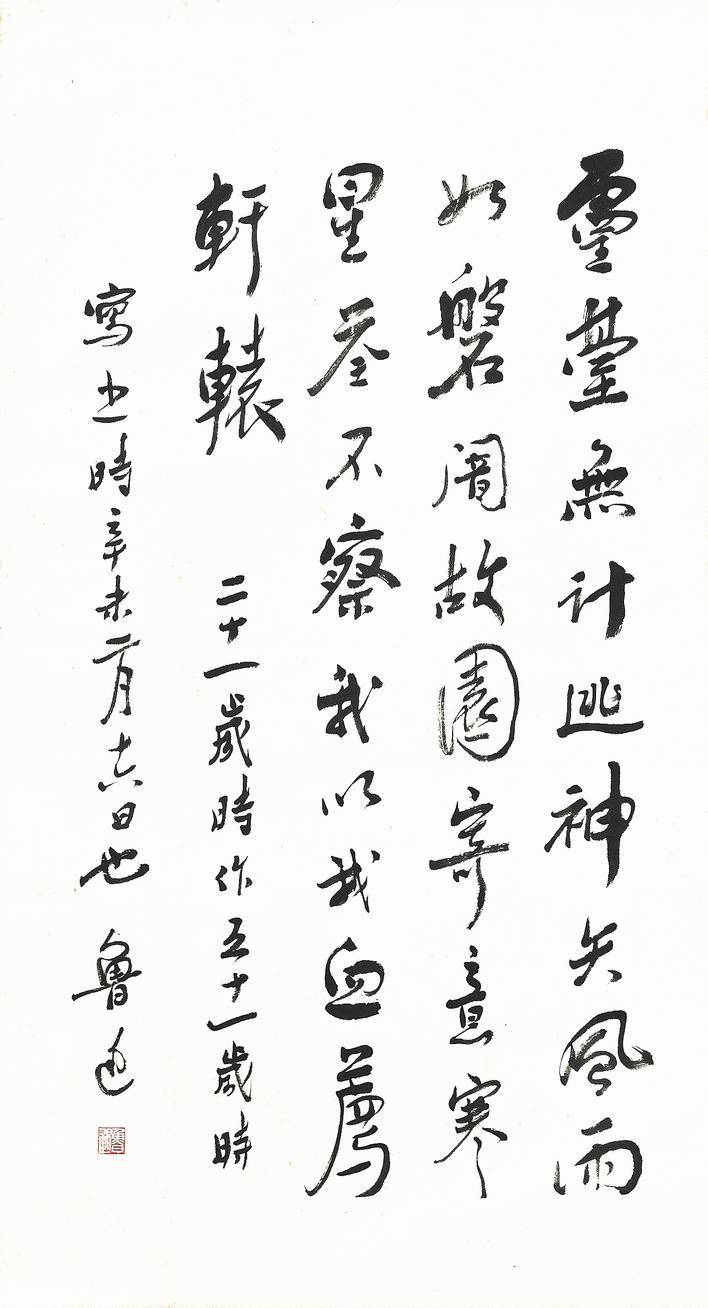 靈臺無計逃神矢風雨
如磐闇故園寄意寒
星荃不察我以我血薦
軒轅
二十一歲時作五十一歲時
寫之時辛未二月十六日也 魯迅
魯迅